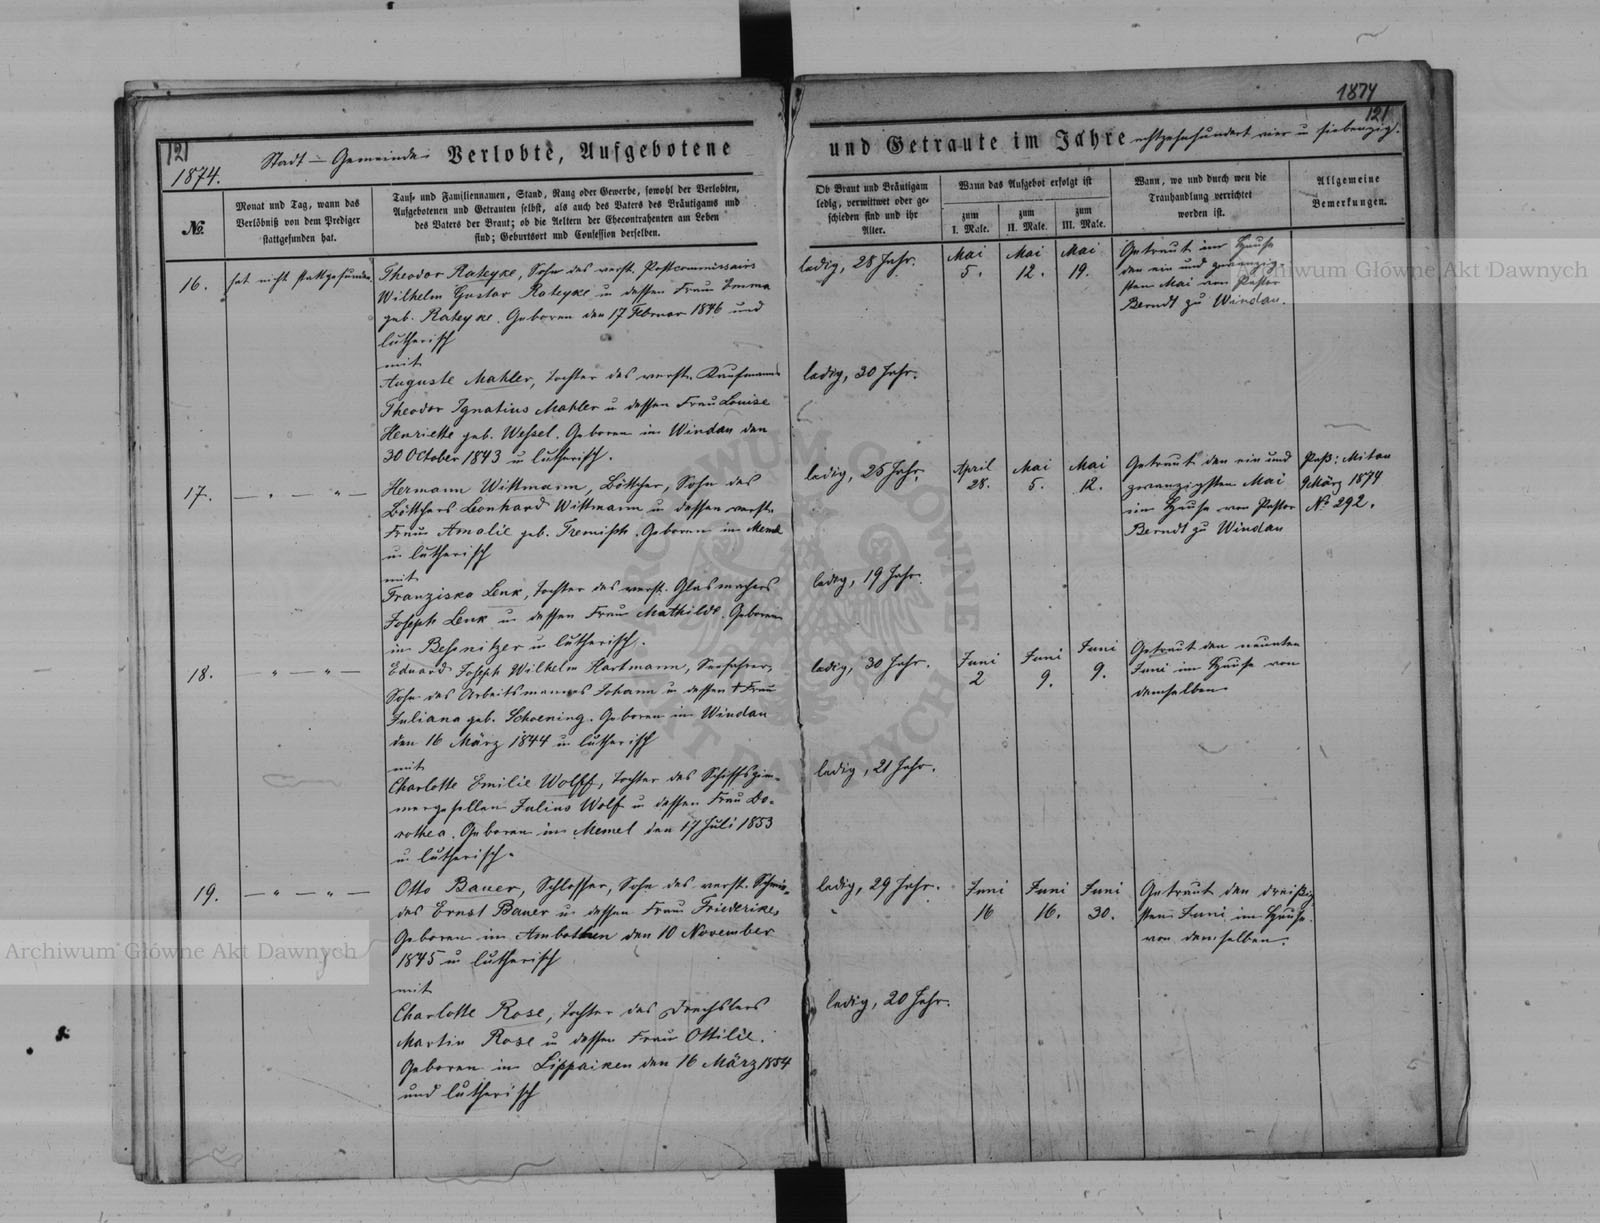 1874
121
121
1874.
Stadt-Gemeinde
Verlobte, Aufgebotene
und Getraute im Jahre achtzehnhundert vier u siebenzig.
№.
Monat und Tag, wann das
Verlöbniß von dem Prediger
stattgefunden hat.
Tauf- und Familiennamen, Stand, Rang oder Gewerbe, sowohl der Verlobten,
Aufgebotenen und Getrauten selbst, als auch des Vaters des Bräutigams und
des Vaters der Braut; ob die Aeltern der Ehecontrahenten am Leben
sind; Geburtsort und Confession derselben.
Ob Braut und Bräutigam
ledig, verwittwet oder ge-
schieden sind und ihr
Alter.
Wann das Aufgebot erfolgt ist
zum
I. Male.
zum
II. Male.
zum
III. Male.
Wann, wo und durch wen die
Trauhandlung verrichtet
worden ist.
Allgemeine
Bemerkungen.
16.
hat nicht stattgefunden
Theodor Rateyke, Sohn des verst. Postcommissairs
Wilhelm Gustav Rateyke u dessen Frau Emma
geb. Rateyke. Geboren den 17 Februar 1846 und
lutherisch
mit
Auguste Mahler, Tochter des verst. Kaufmanns
Theodor Ignatius Mahler u dessen Frau Louise
Henriette geb. Wessel. Geboren in Windau den
30 October 1843 u lutherisch.
ledig, 28 Jahr.
ledig, 30 Jahr.
Mai
5.
Mai
12.
Mai
19.
Getraut im Hause
den ein und zwanzig-
sten Mai von Pastor
Berndt zu Windau.
17.
— " — " —
Hermann Wittmann, Böttcher, Sohn des
Böttchers Leonhard Wittmann u dessen verst.
Frau Amalie geb. . Geboren in Memel
u lutherisch
mit
Franziska Lenk, Tochter des verst. Glasmachers
Joseph Lenk u dessen Frau Mathilde. Geboren
in u lutherisch.
ledig, 25 Jahr.
ledig, 19 Jahr.
April
28.
Mai
5.
Mai
12.
Getraut den ein und
zwanzigsten Mai
im Hause von Pastor
Berndt zu Windau
Paß: Mitau
9 März 1874
№ 292.
18.
— " — " —
Eduard Joseph Wilhelm Hartmann, Seefahrer,
Sohn des Arbeitsmannes Johann u dessen † Frau
Juliana geb. Schoening. Geboren in Windau
den 16 März 1844 u lutherisch
mit
Charlotte Emilie Wolff, Tochter des Schiffszim-
mergesellen Julius Wolff u dessen Frau Do-
rothea. Geboren in Memel den 17 Juli 1853
u lutherisch.
ledig, 30 Jahr.
ledig, 21 Jahr.
Juni
2
Juni
9.
Juni
9.
Getraut den neunten
Juni im Hause von
demselben
19.
— " — " —
Otto Bauer, Schlosser, Sohn des verst. Schmie-
des Ernst Bauer u dessen Frau Friederike,
Geboren in Ambothen den 10 November
1845 u lutherisch
mit
Charlotte Rose, Tochter des Drechslers
Martin Rose u dessen Frau Ottilie.
Geboren in Lippaiken den 16 März 1854
und lutherisch
ledig, 29 Jahr.
ledig, 20 Jahr.
Juni
16
Juni
16.
Juni
30.
Getraut den dreißig-
sten Juni im Hause
von demselben.
Archiwum Główne Akt Dawnych
Archiwum Główne Akt Dawnych
ARCHIWUM GŁÓWNE AKT DAWNYCH